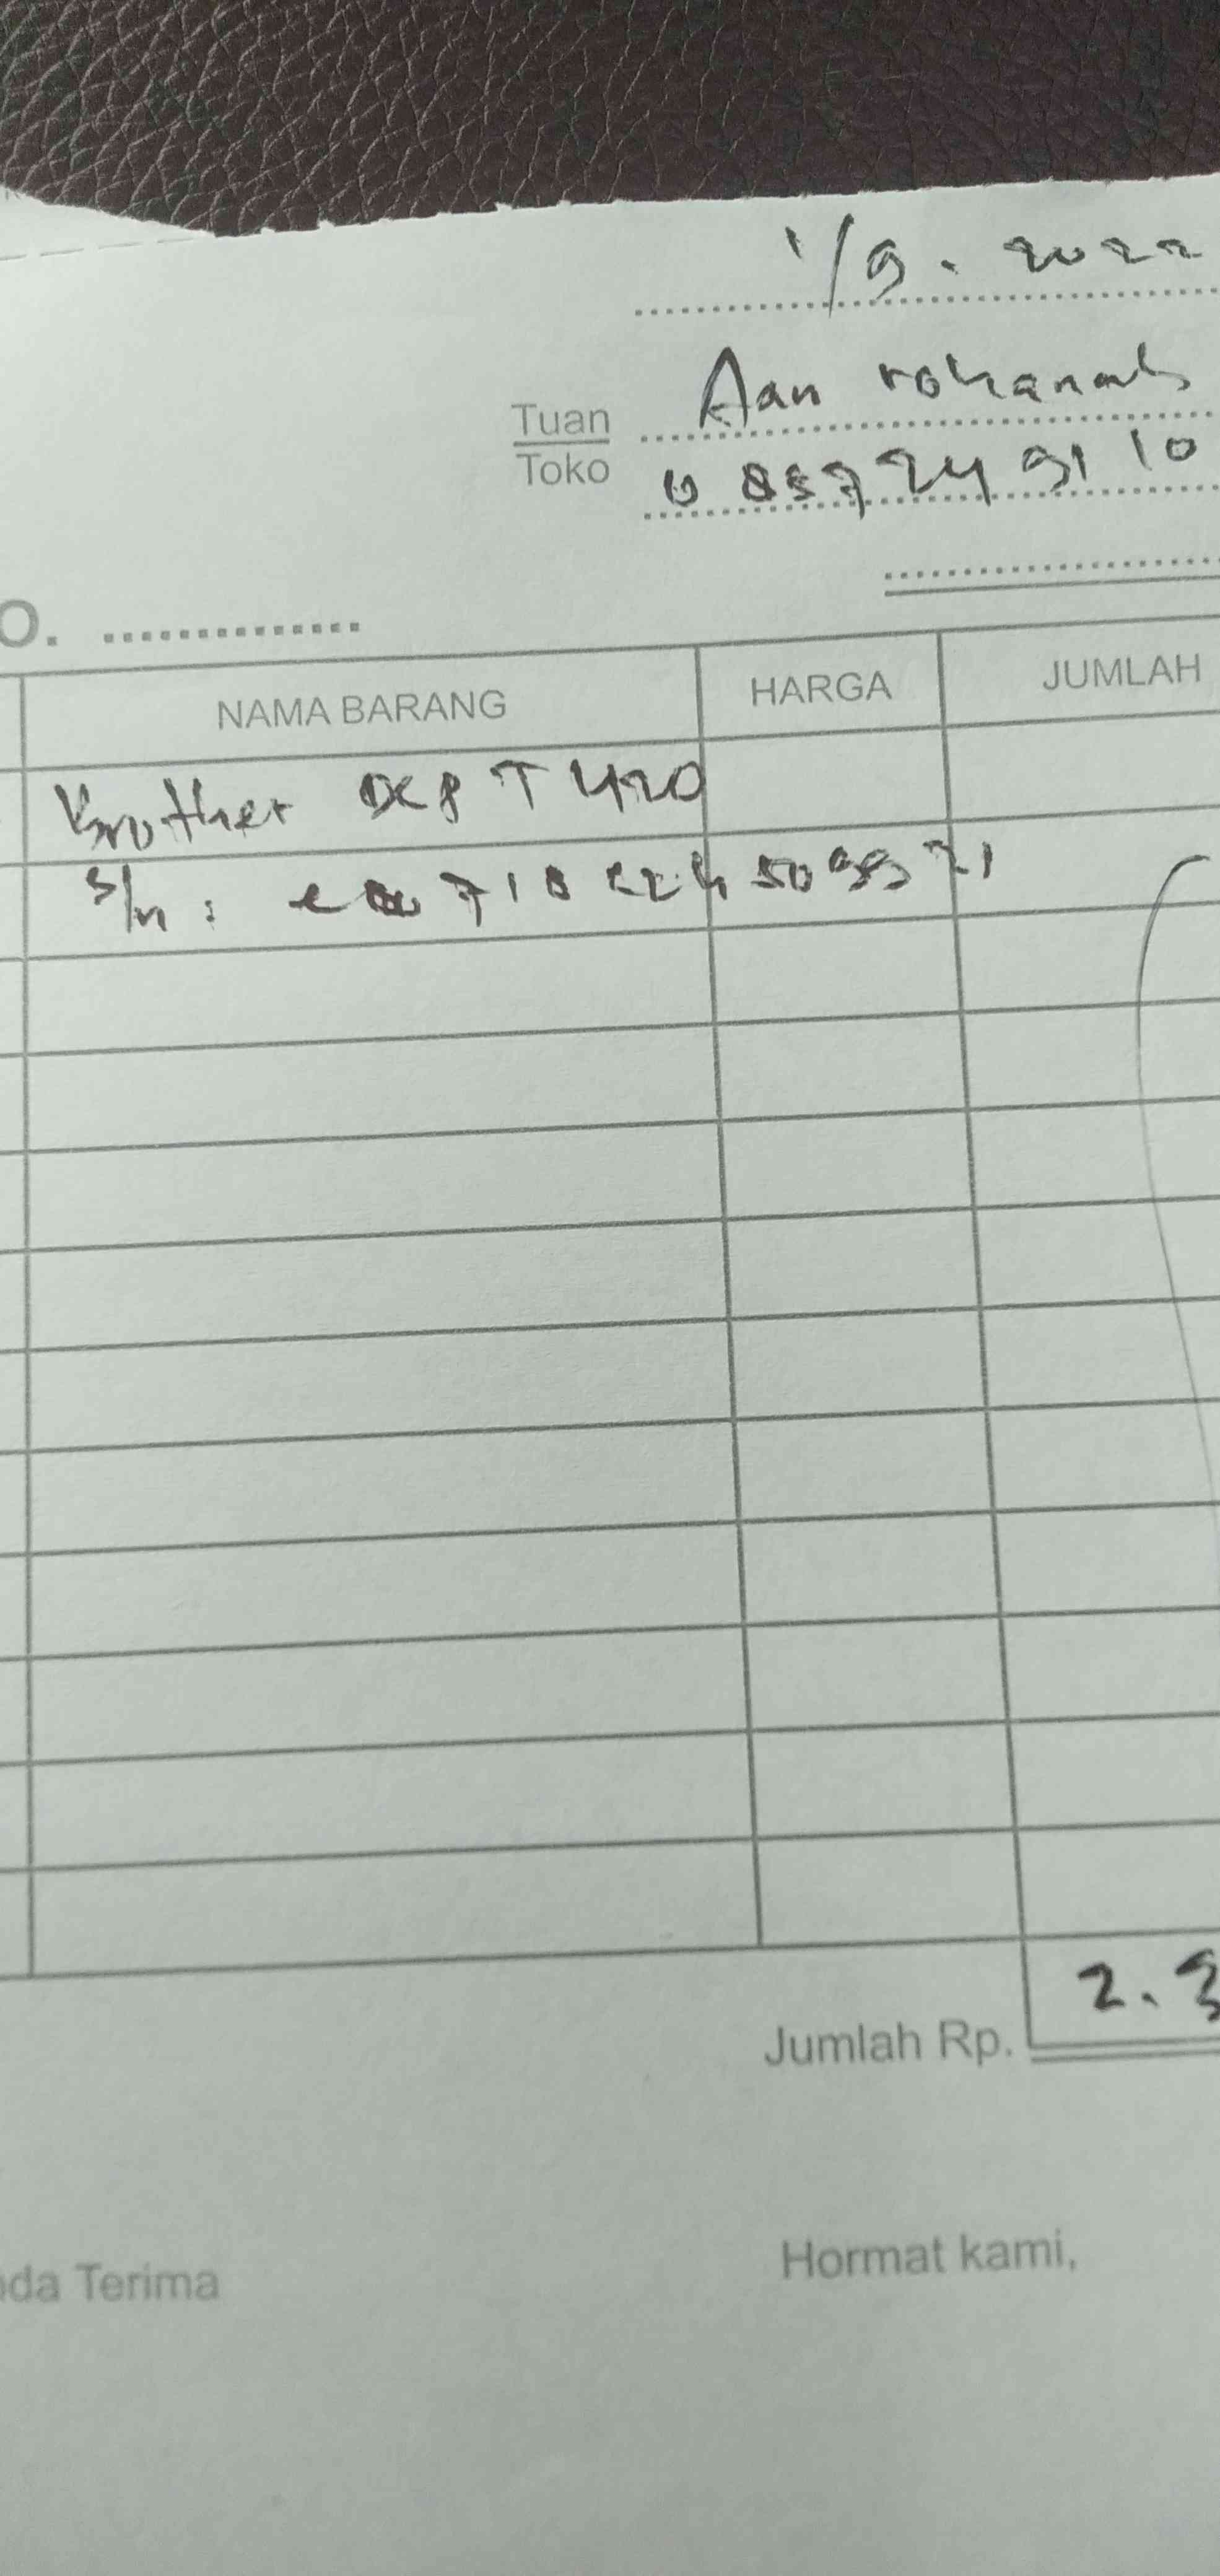 1/9. 2022
Tuan Aan rohanah
Toko 085724 91 10
O. ..............
NAMA BARANG HARGA JUMLAH
Brother DCP T 420
S/n :
2.3
Jumlah Rp.
nda Terima Hormat kami,